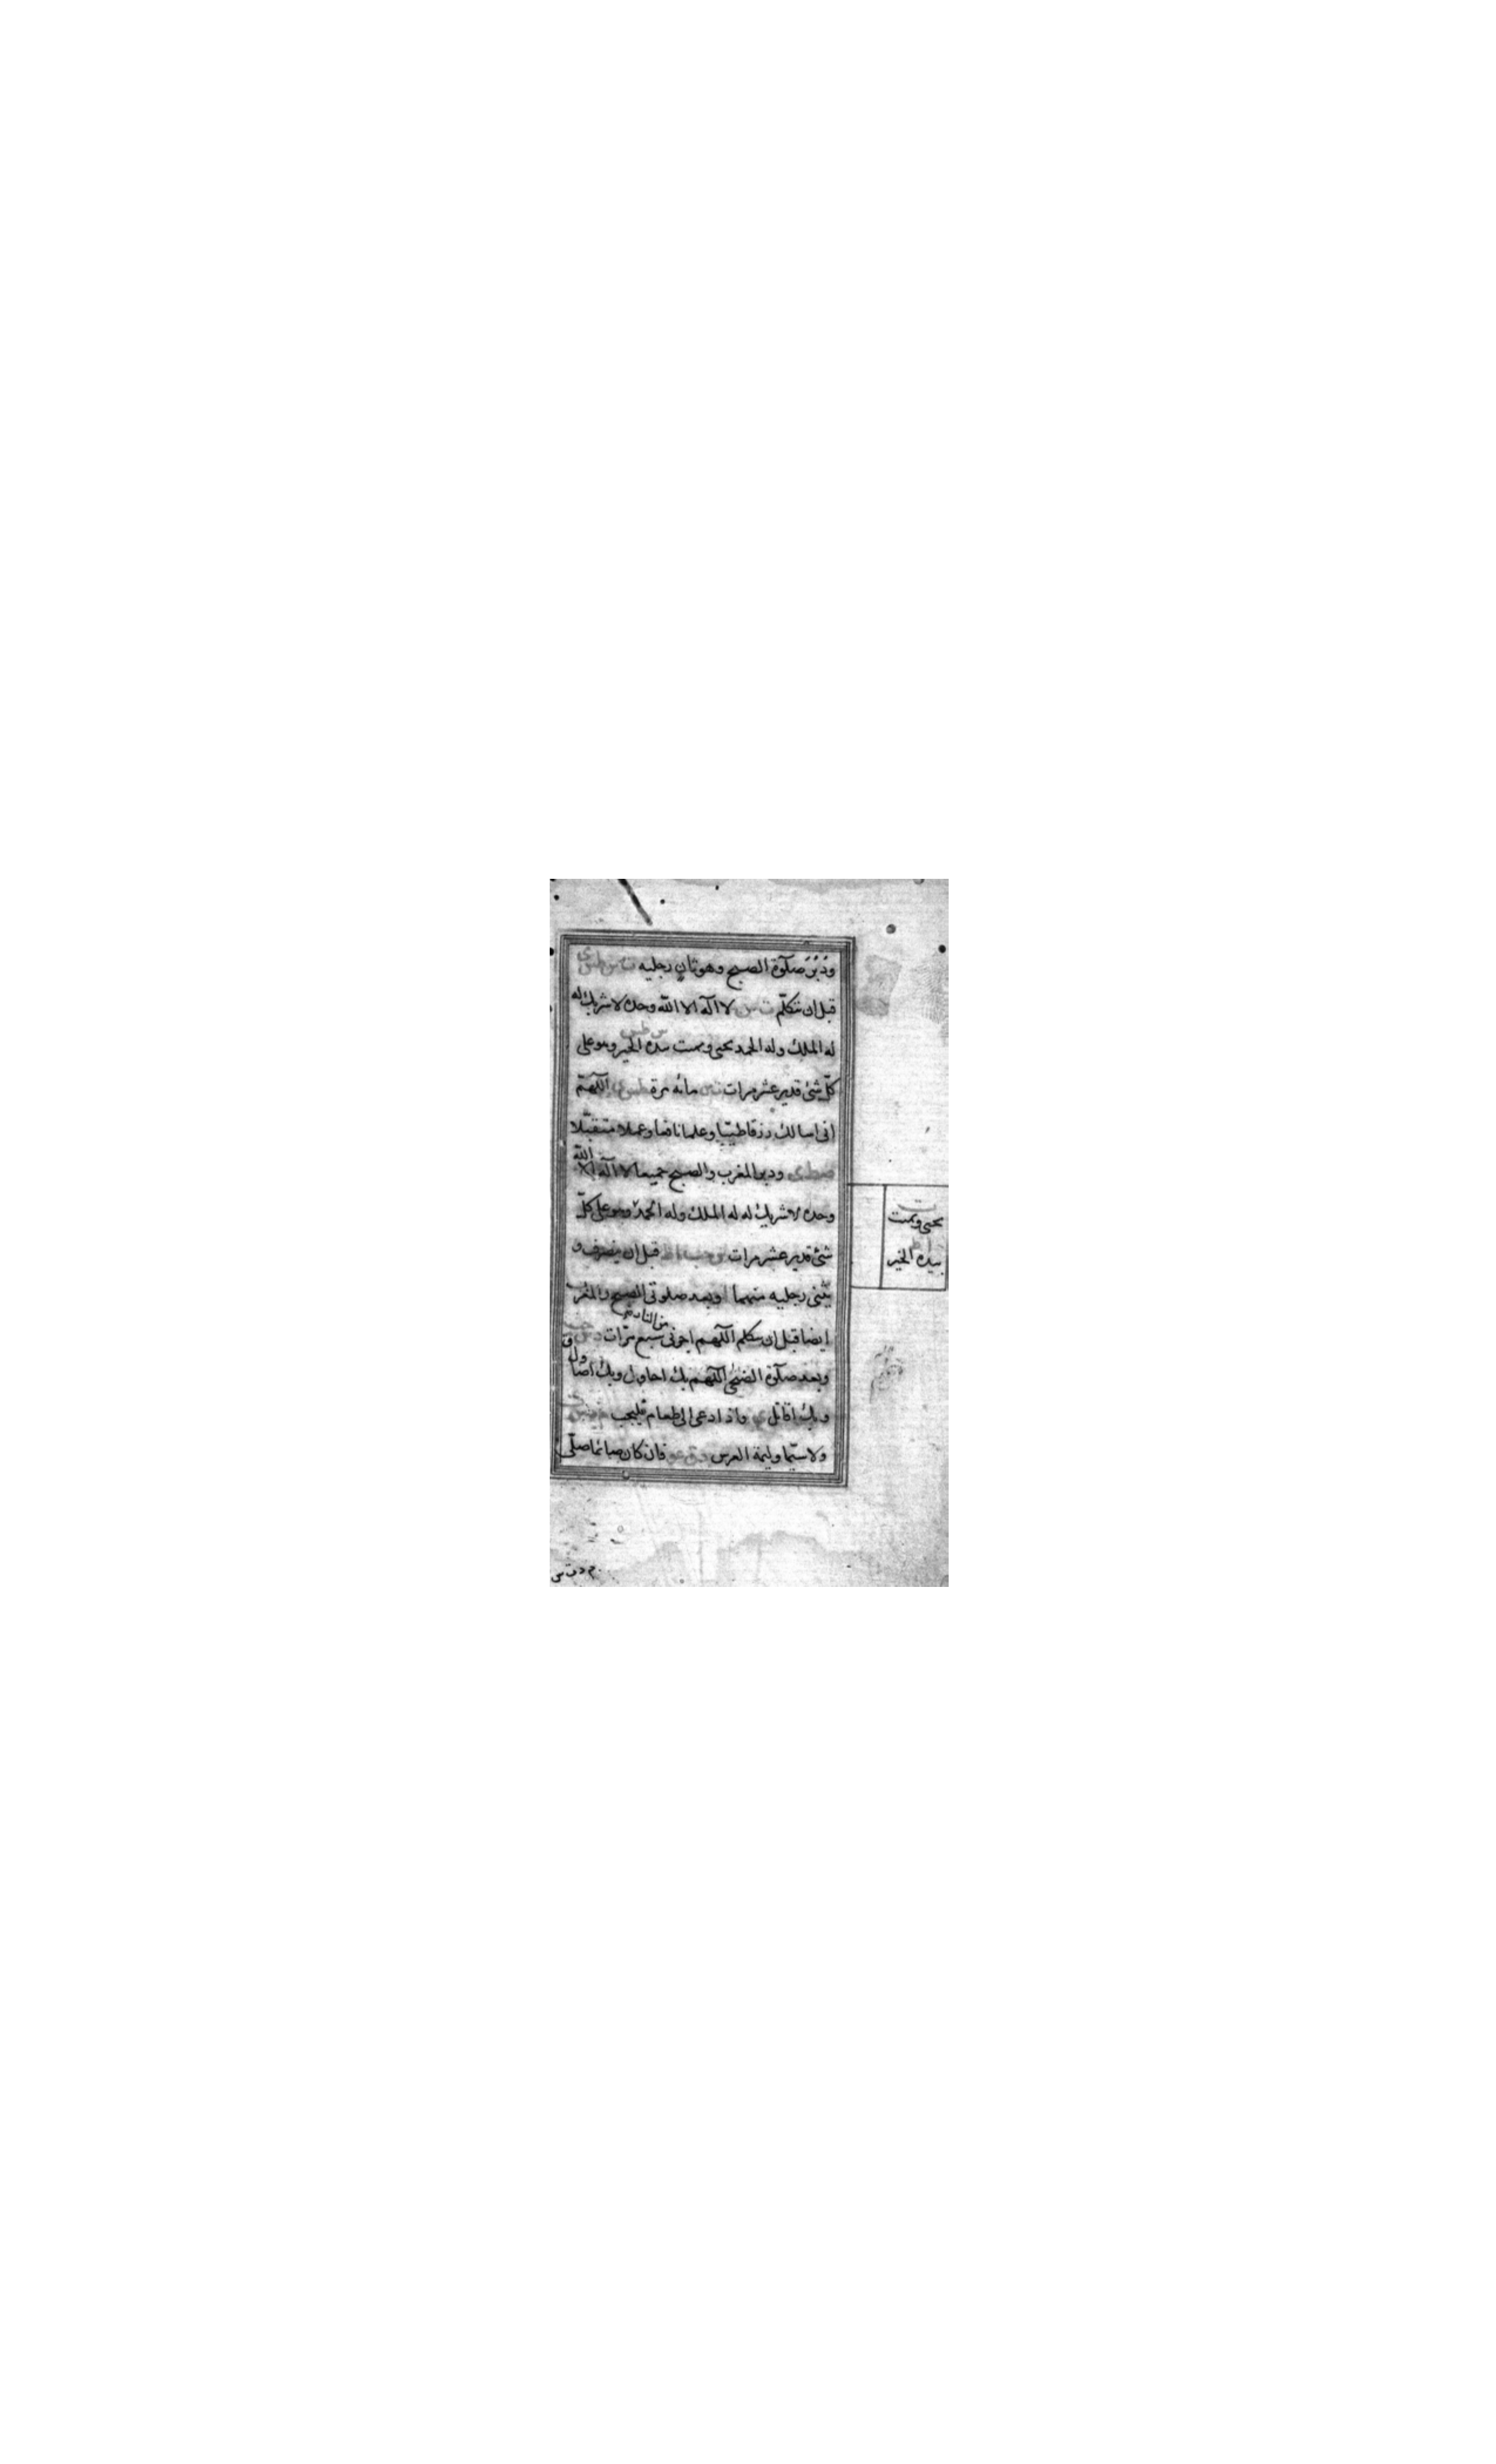 ودُبُرَ صلٰوة الصبح وهو ثانٍ رجليه ت س طس ى
قبل ان يتكلّم ت س لا اله الا الله وحده لا شريك له
له الملك وله الحمد يحيى ويميت بيده الخير وهو على
س طس
كلّ شئ قدير عشر مرات ت س مائه مرة طس ى اللّٰهمّ
انى اسالك رزقا طيّبا وعلما نافعا وعملا متقبّلا
صط ى ودبر المغرب والصبح جميعا لا اله الا الله
وحده لا شريك له له الملك وله الحمد وهو على كلّ
شئ قدير عشر مرات س حب ا ط قبل ان ينصرف و
يثنى رجليه منهما ا وبعد صلوتى الصبح والمغرب
ايضا قبل ان يتكلم اللّٰهم اجرنى من النار سبع مرّات د س حب
وبعد صلٰوة الضحٰى اللّٰهم بك احاول وبك اصاول
وبك اقاتل ى واذا دعى الى طعام فليجب
ولا سيّما وليمة العرس د ق عو فان كان صائما صلّى
يحيى ويميت
بيده الخير
م د ت س